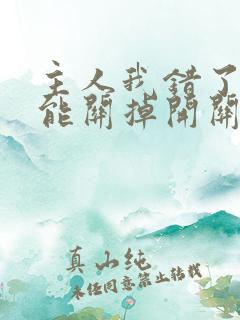 主人我错了
能關掉開關
真山纯
未经同意禁止转载